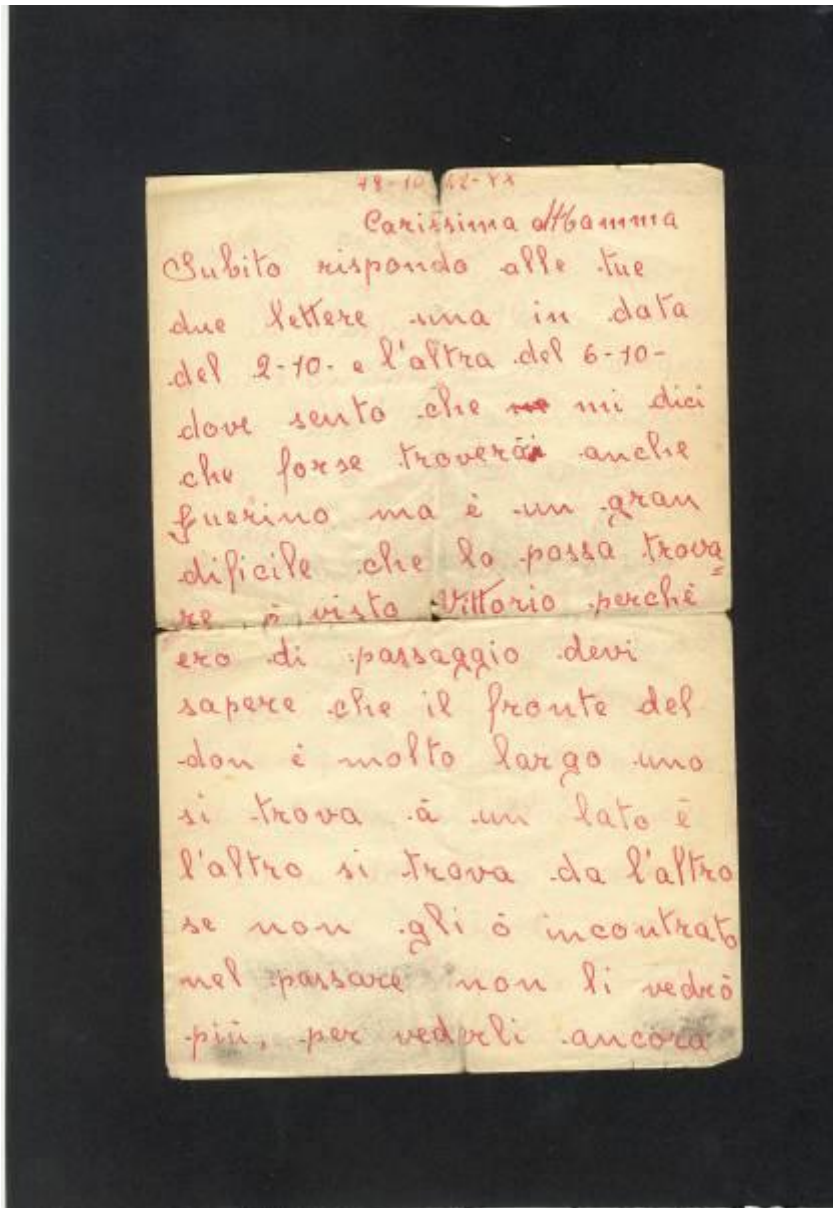 18-10-42-XX
Carissima Mamma
Subito rispondo alle tue
due lettere una in data
del 2-10- e l'altra del 6-10-
dove sento che mi dici
che forse troverai anche
Guerino ma è un gran
dificile che lo possa trova=
re ò visto Vittorio perchè
ero di passaggio devi
sapere che il fronte del
don è molto largo uno
si trova à un lato è
l'altro si trova da l'altro
se non gli ò incontrato
nel passare non li vedrò
più, per vederli ancora